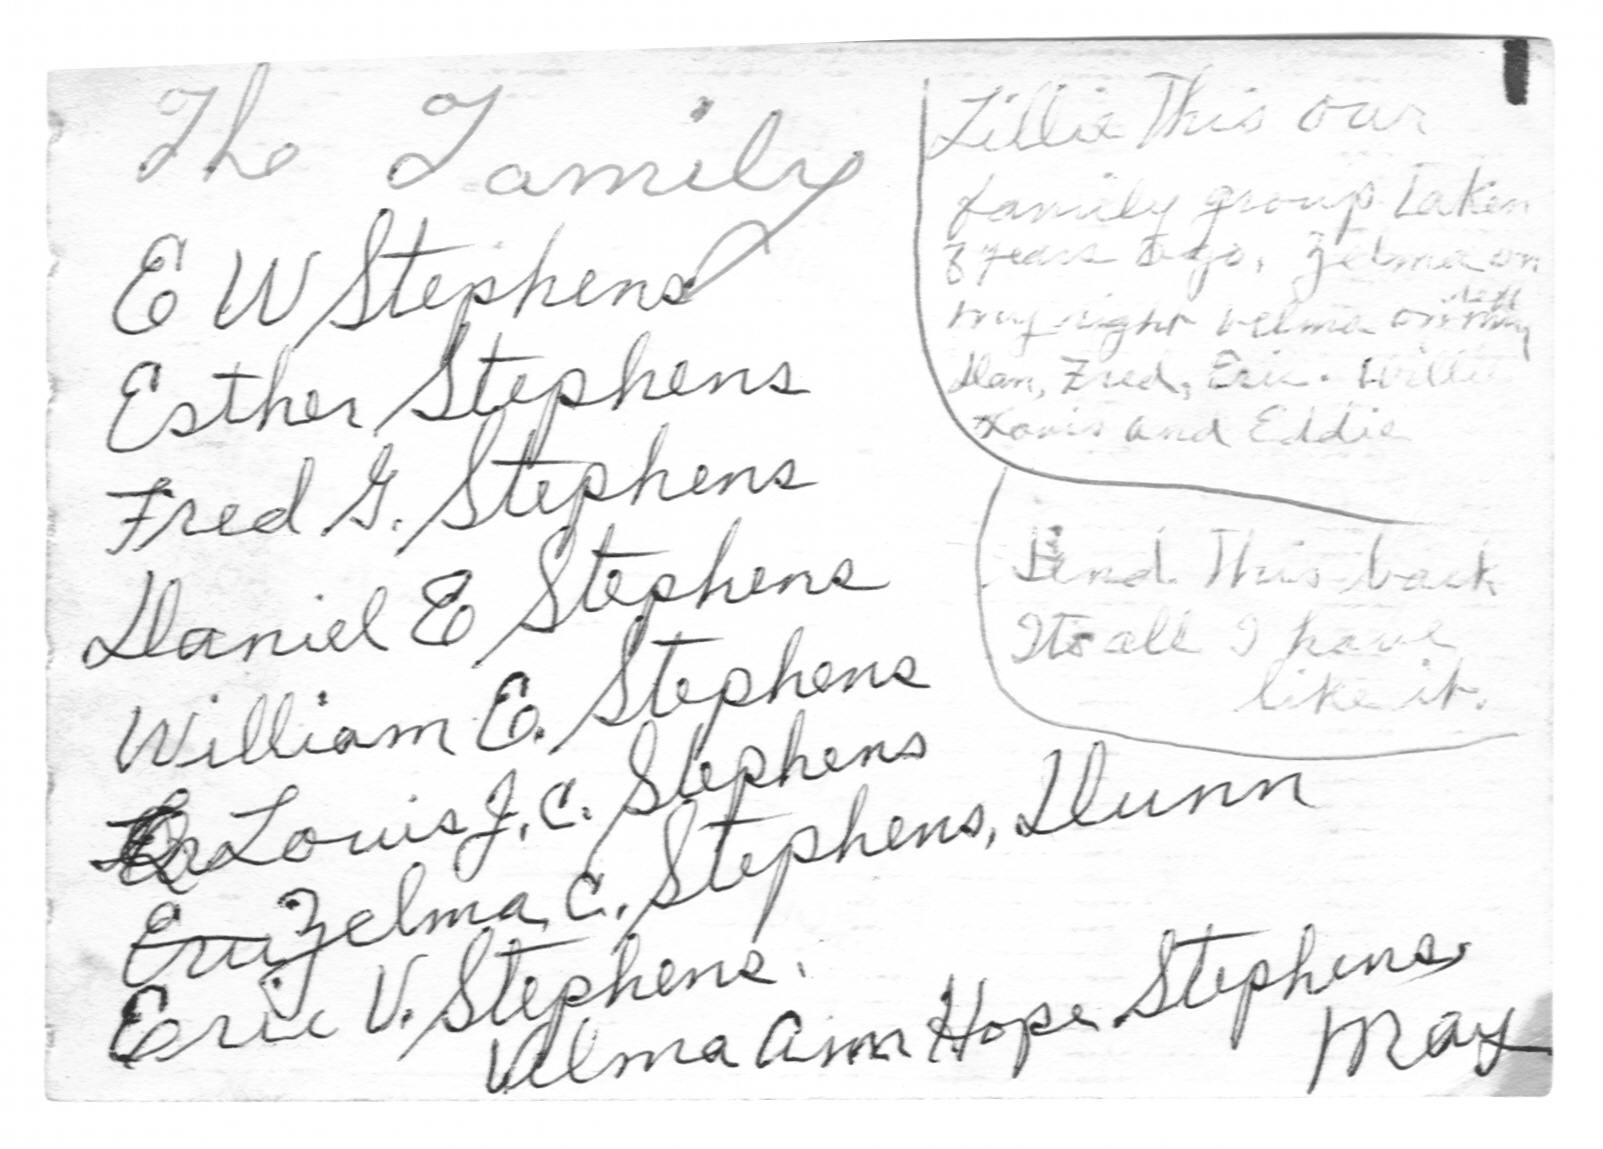 The Family
E W Stephens
Esther Stephens
Fred G. Stephens
Daniel E Stephens
William E. Stephens
Louis J. C. Stephens
Eric Zelma, C. Stephens, Dunn
Eric V. Stephens.
Velma Ann Hope Stephens.
May
Lillie This our
family group taken
3 years ago, Zelma on
my right velma on my
left
Dan, Fred, Eric. Willie
Louis and Eddie
Send This back
Its all I have
like it.